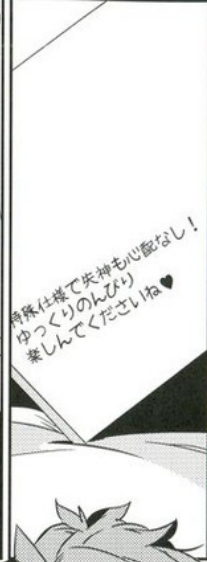 特殊仕様で失神も心配なし！
ゆっくりのんびり
楽しんでくださいね♥